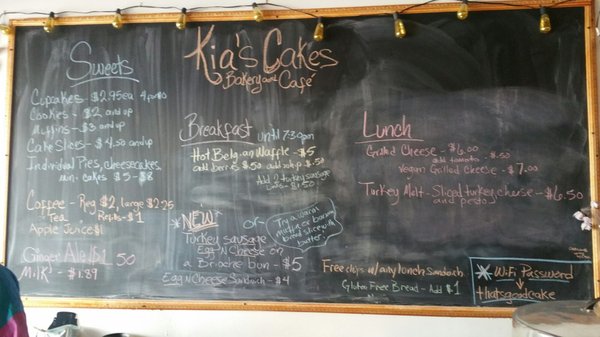 Kia's Cakes
Bakery and Café
Sweets
Cupcakes - $2.95ea 4 for $10
Cookies - $2 and up
Muffins - $3 and up
Cake Slices - $4.50 and up
Individual Pies, cheesecakes,
mini cakes $5 - $8
Coffee - Reg $2, large $2.25
Tea Refills - $1
Apple Juice $1
Ginger Ale $1.50
Milk - $1.89
Breakfast until 7:30pm
Hot Belgian Waffle - $5
add berries $.50 add syrup $.50
Add 2 turkey sausage
links - $1.50
*NEW*
Turkey sausage
Egg N Cheese on
a Brioche Bun - $5
Egg N Cheese Sandwich - $4
or -
Try a warm
muffin or banana
bread slice with
butter
Lunch
Grilled Cheese - $6.00
add tomato - $.50
Vegan Grilled Cheese - $7.00
Turkey Melt - Sliced turkey, cheese - $6.50
and pesto
Free chips w/any lunch Sandwich
Gluten Free Bread - Add $1
* Wi-Fi Password
thatsgoodcake